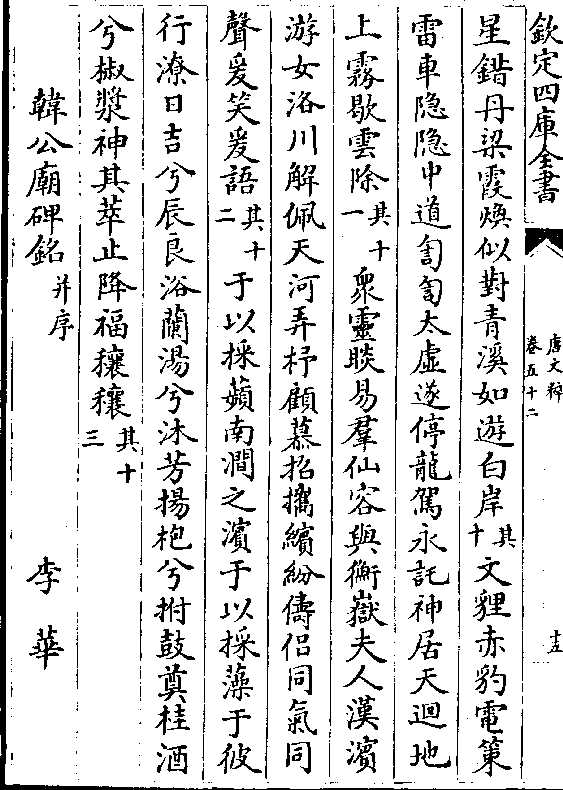 欽定四庫全書
唐文粹
卷五十二
十五
星錯丹梁霞煥似對青溪如遊白岸其十文貍赤豹電策
雷車隐隐中道訇訇太虛遂停龍駕永託神居天迴地
上霧歇雲除其十一衆靈睒易羣仙容與衡嶽夫人漢濱
游女洛川解佩天河弄杼顧慕招攜繽紛儔侣同氣同
聲爰笑爰語其十二于以採蘋南澗之濱于以採藻于彼
行潦日吉兮辰良浴蘭湯兮沐芳揚枹兮拊鼓奠桂酒
兮椒漿神其萃止降福穰穰其十三
韓公廟碑銘并序　李華